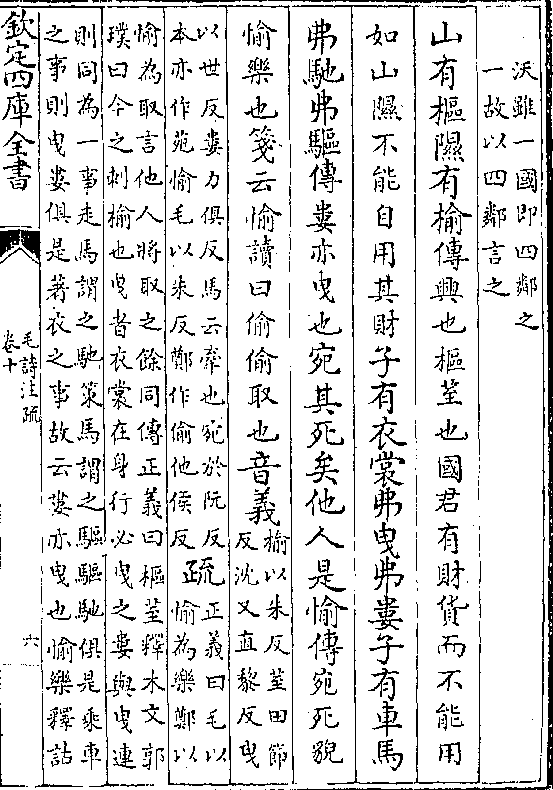 沃雖一國即四鄰之
一故以四鄰言之
山有樞隰有榆傳興也樞荎也國君有財貨而不能用
如山隰不能自用其財子有衣裳弗曳弗婁子有車馬
弗馳弗驅傳婁亦曳也宛其死矣他人是愉傳宛死貌
愉樂也箋云愉讀曰偷偷取也音義
榆以朱反荎田節
反沈又直黎反曳
以世反婁力俱反馬云牽也宛於阮反
本亦作苑愉毛以朱反鄭作偷他侯反
疏
正義曰毛以
愉為樂鄭以
愉為取言他人將取之餘同傳正義曰樞荎釋木文郭
璞曰今之刺榆也曳者衣裳在身行必曳之婁與曳連
則同為一事走馬謂之馳策馬謂之驅驅馳俱是乘車
之事則曳婁俱是著衣之事故云婁亦曳也愉樂釋詁
欽定四庫全書
毛詩注疏
卷十
六